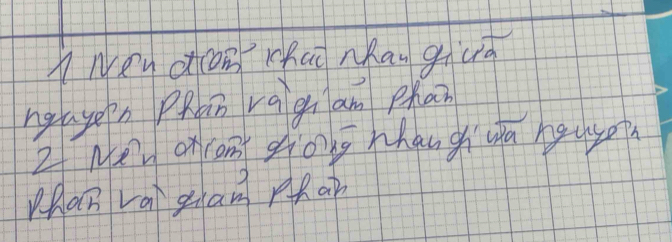 1 Nêu điểm khác nhau giữa
nguyên Phân và giảm Phân
2 Nêu điểm giống nhau giữa nguyên
Phân và giảm Phân